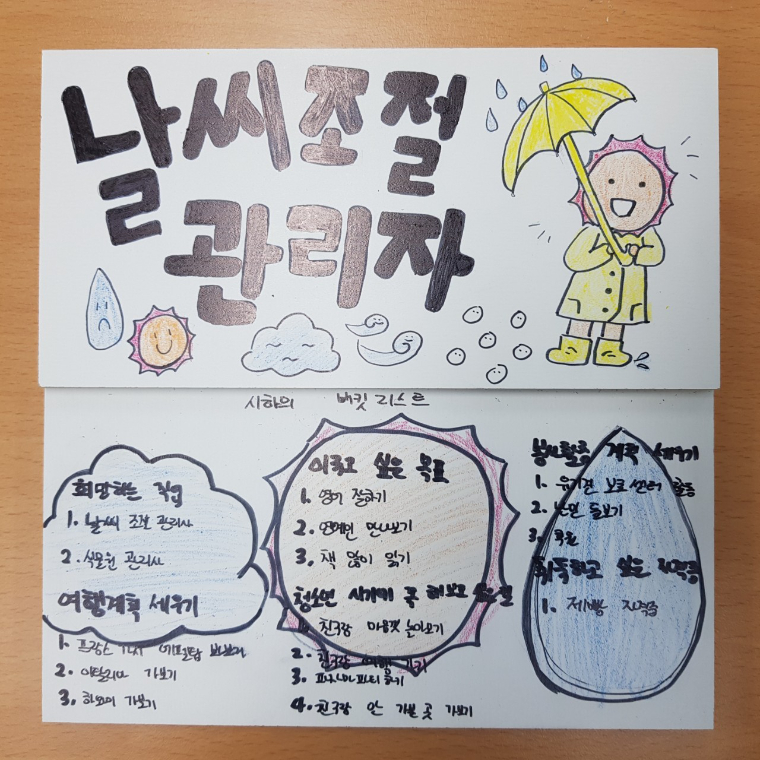 날씨조절
관리자
시하의 버킷 리스트
희망하는 직업
1. 날씨 조절 관리사
2. 식물원 관리사
여행계획 세우기
1. 프랑스 가서 에펠탑 보기
2. 이탈리아 가보기
3. 하와이 가보기
이루고 싶은 목표
1. 영어 잘하기
2. 연예인 만나보기
3. 책 많이 읽기
청소년 시기에 꼭 해보고 싶은 일
1. 친구랑 마음껏 놀아보기
2. 친구랑 여행 가기
3. 파자마파티하기
4. 친구랑 안 가본 곳 가보기
봉사활동 계획 세우기
1. 유기견 보호 센터 활동
2. 노인 돌보기
3.
취득하고 싶은 자격증
1. 제빵 자격증